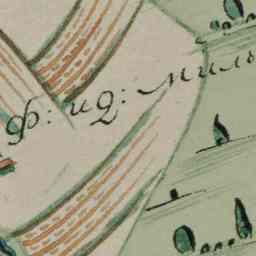 Ф: и Д: миль